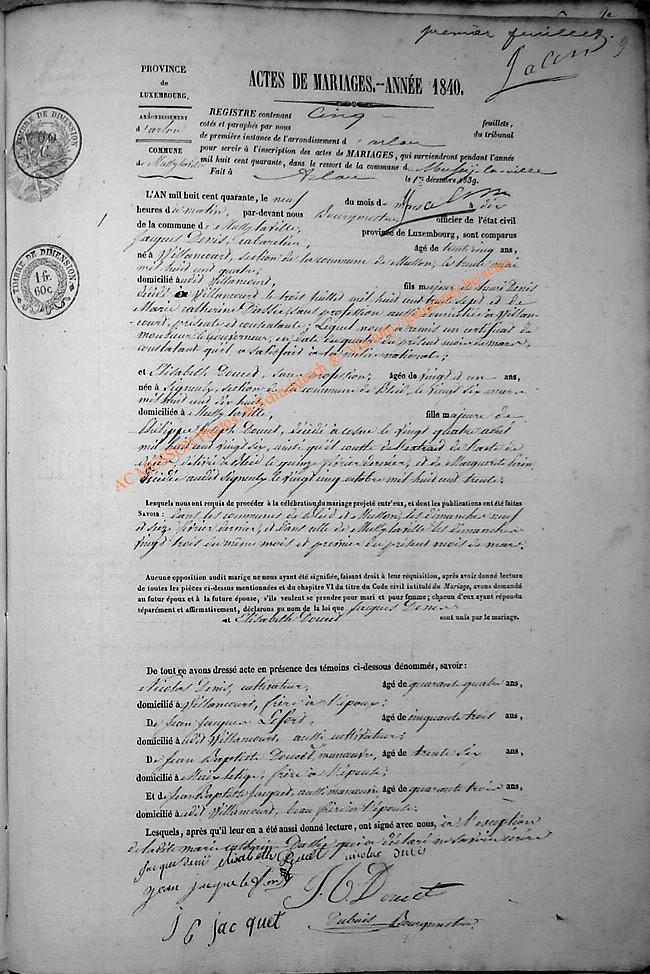 premier feuillet
PROVINCE
de
LUXEMBOURG,
ARRONDISSEMENT
d'arlon
COMMUNE
de Mussy la ville
TIMBRE DE DIMENSION
TIMBRE DE DIMENSION
1 fr.
60c
ACTES DE MARIAGES.--ANNÉE 1840.
REGISTRE contenant cinq feuillets,
cotés et paraphés par nous du tribunal
de première instance de l'arrondissement d'arlon
pour servir à l'inscription des actes de MARIAGES, qui surviendront pendant l'année
mil huit cent quarante, dans le ressort de la commune de Mussy la ville
Fait à Arlon le 1er décembre 1839.
L'AN mil huit cent quarante, le neuf du mois de mars à dix
heures du matin, par-devant nous Bourgmestre officier de l'état civil
de la commune de Mussy la ville, province de Luxembourg, sont comparus
Jacques Denis, cabaretier, âgé de trente cinq ans,
né à Willancourt, section de la commune de Musson, le trente
mil huit cent quatre,
domicilié audit Willancourt, fils majeur de Denis
décédé à Willancourt le trois juillet mil huit cent trente sept et de
Marie Catherine Dassy, sans profession, aussi domiciliée à Willan-
court, présente et consentante; Lequel nous a remis un certificat de
monsieur le gouverneur, en date du quatre du présent mois de mars,
constatant qu'il a satisfait à la milice nationale;
et Elisabeth Doucet, sans profession, âgée de vingt et un ans,
née à Signeulx, section de la commune de Bleid, le vingt dix mars
mil huit cent dix huit
domiciliée à Mussy la ville, fille majeure de
Philippe Joseph Doucet, décédé à Cosne le vingt quatre avril
mil huit cent vingt dix, ainsi qu'il conste de l'extrait de l'acte de
décès délivré à Bleid le quinze février dernier, et de Marguerite
décédée audit Signeulx le vingt cinq octobre mil huit cent trente.
Lesquels nous ont requis de procéder à la célébration du mariage projeté entr'eux, et dont les publications ont été faites
SAVOIR : dans les communes de Bleid et Musson, les dimanches neuf
et seize février dernier, et dans celle de Mussy la ville les dimanches
vingt trois du même mois et premier du présent mois de mars.
Aucune opposition audit marige ne nous ayant été signifiée, faisant droit à leur réquisition, après avoir donné lecture
de toutes les pièces ci-dessus mentionnées et du chapitre VI du titre du Code civil intitulé du Mariage, avons demandé
au futur époux et à la future épouse, s'ils veulent se prendre pour mari et pour femme ; chacun d'eux ayant répondu
séparément et affirmativement, déclarons au nom de la loi que Jacques Denis
et Elisabeth Doucet sont unis par le mariage.
De tout ce avons dressé acte en présence des témoins ci-dessous dénommés, savoir :
Nicolas Denis, cultivateur, âgé de quarante quatre ans,
domicilié à Willancourt, frère à l'époux;
De Jean Jacques Lefort, âgé de cinquante trois ans,
domicilié audit Willancourt, aussi cultivateur;
De Jean Baptiste Doucet, manœuvre, âgé de trente six ans,
domicilié à frère à l'épouse;
Et de Jean Baptiste Jacquet, aussi manœuvre âgé de quarante trois ans,
domicilié audit Willancourt, beau frère à l'épouse.
Lesquels, après qu'il leur en a été aussi donné lecture, ont signé avec nous, à l'exception
de ladite marie catherine Dassy qui a déclaré ne savoir écrire
jacque denis elisabeth Doucet nicolas denis
jean jacque lefort J. B Doucet
J B jacquet Dubois Bourgmestre